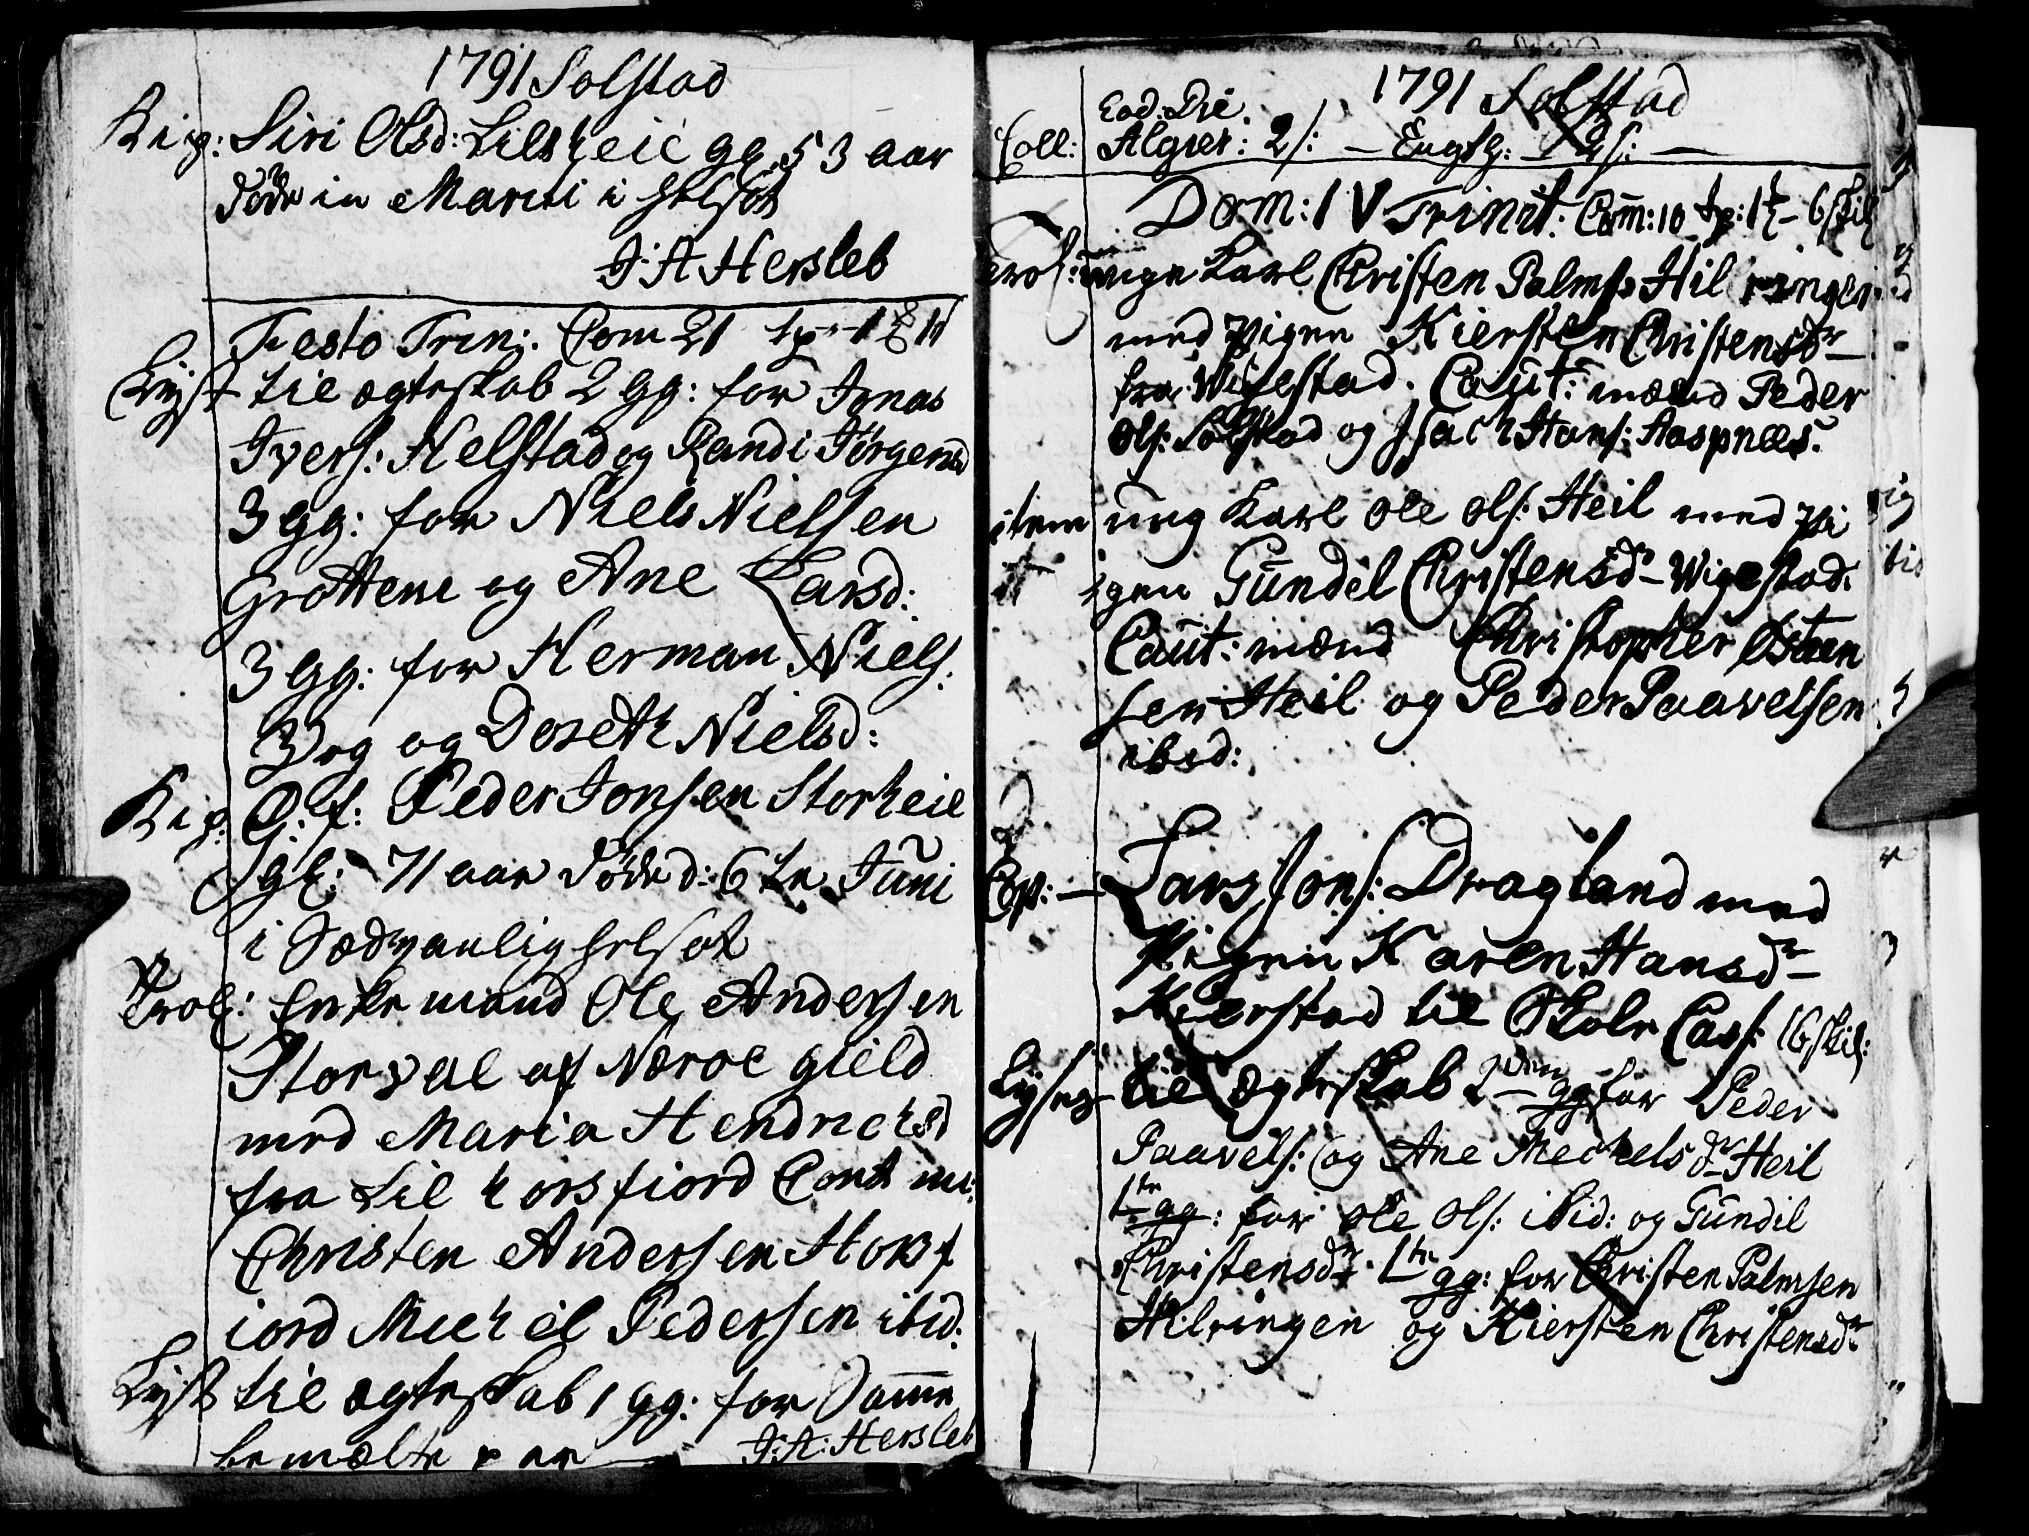 1791 Solstad
Rip: Siri Olsd: Lilsheie gl. 53 aar
døde in Martii i Helsot
J: A Hersleb
Festo Trin: Com 21
Lyst til ægteskab 2 gg: for Jonas
Ivers: Helstad og Randi Jørgensd
3 gg: for Niels Nielsen
Grøttem og Ane Larsd:
3 gg: for Herman Niels:
og Doreth Nielsd:
Rip: G: f: Peder Jonsen Storheil
gl: 71 aar døde d: 6te Juni
i Sædvanlig helsot
Trol: Enke mand Ole Andersen
Storval af Næroe gield
med Maria Hendrichsd
fra Lil korsfiord Caut m:
Christen Andersen Horsf
iord Michel Pedersen ibid.
Lyst til ægteskab 1 gg: for Samme
bemælte par — J: A: Hersleb
1791 Solstad
Eod: Die.
Coll: Algier: 2 s: — Eugtg: — 2 s: —
Dom: IV Trinit: Com: 10 6 skil
Trol: unge Karl Christen Palms: Hilringen
med Pigen Kiersten Christensdr
fra Wigestad. Caut: mænd Peder
Ols: Solstad og Isach Hans: Aaspnæs.
item ung Karl Ole Ols: Heil med Pi
igen Gundel Christensdr Wigestad.
Caut: mænd Christopher Østen
sen Heil og Peder Paavelsen
ibid:
Cop: — Lars Jons: Dragland med
Pigen Karen Hansdr
Kierstad til Skole Cass: 16 skil:
Lyses til Ægteskab 2den gg for Peder
Paavels: og Ane Mechelsdr Heil
1te gg: for Ole Ols: ibid: og Gundil
Christensdr 1te gg: for Christen Palmsen
Hilringen og Kiersten Christensdr